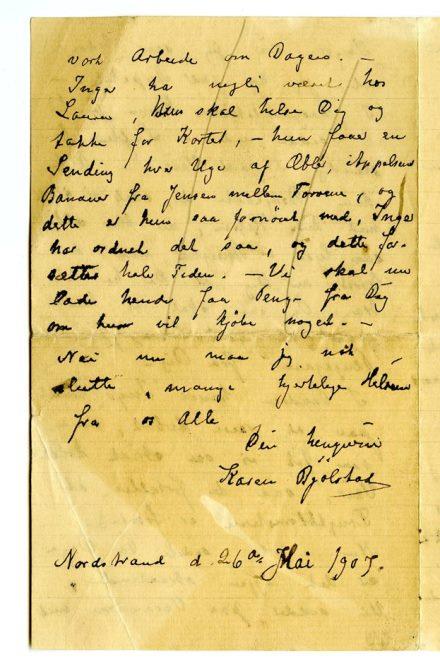 vort Arbeide om Dagen. —
Inga har nylig været hos
Laura, Hun skal helse Dig og
takke for Kortet, — hun faaer en
Sending hver Uge af Æbler, Appelsiner
Bananer fra Jensen mellem Torvene, og
dette er hun saa fornøiet med, Inga
har ordnet det saa, og dette for-
sættes hele Tiden. — Vi skal nu
lade hende faa Penge fra Dig
om hun vil kjøbe noget. —
Nei nu maa jeg nok
slutte, mange hjertelige Hilsener
fra os Alle
Din hengivne
Karen Bjölstad
Nordstrand d. 26 Mai 1905.